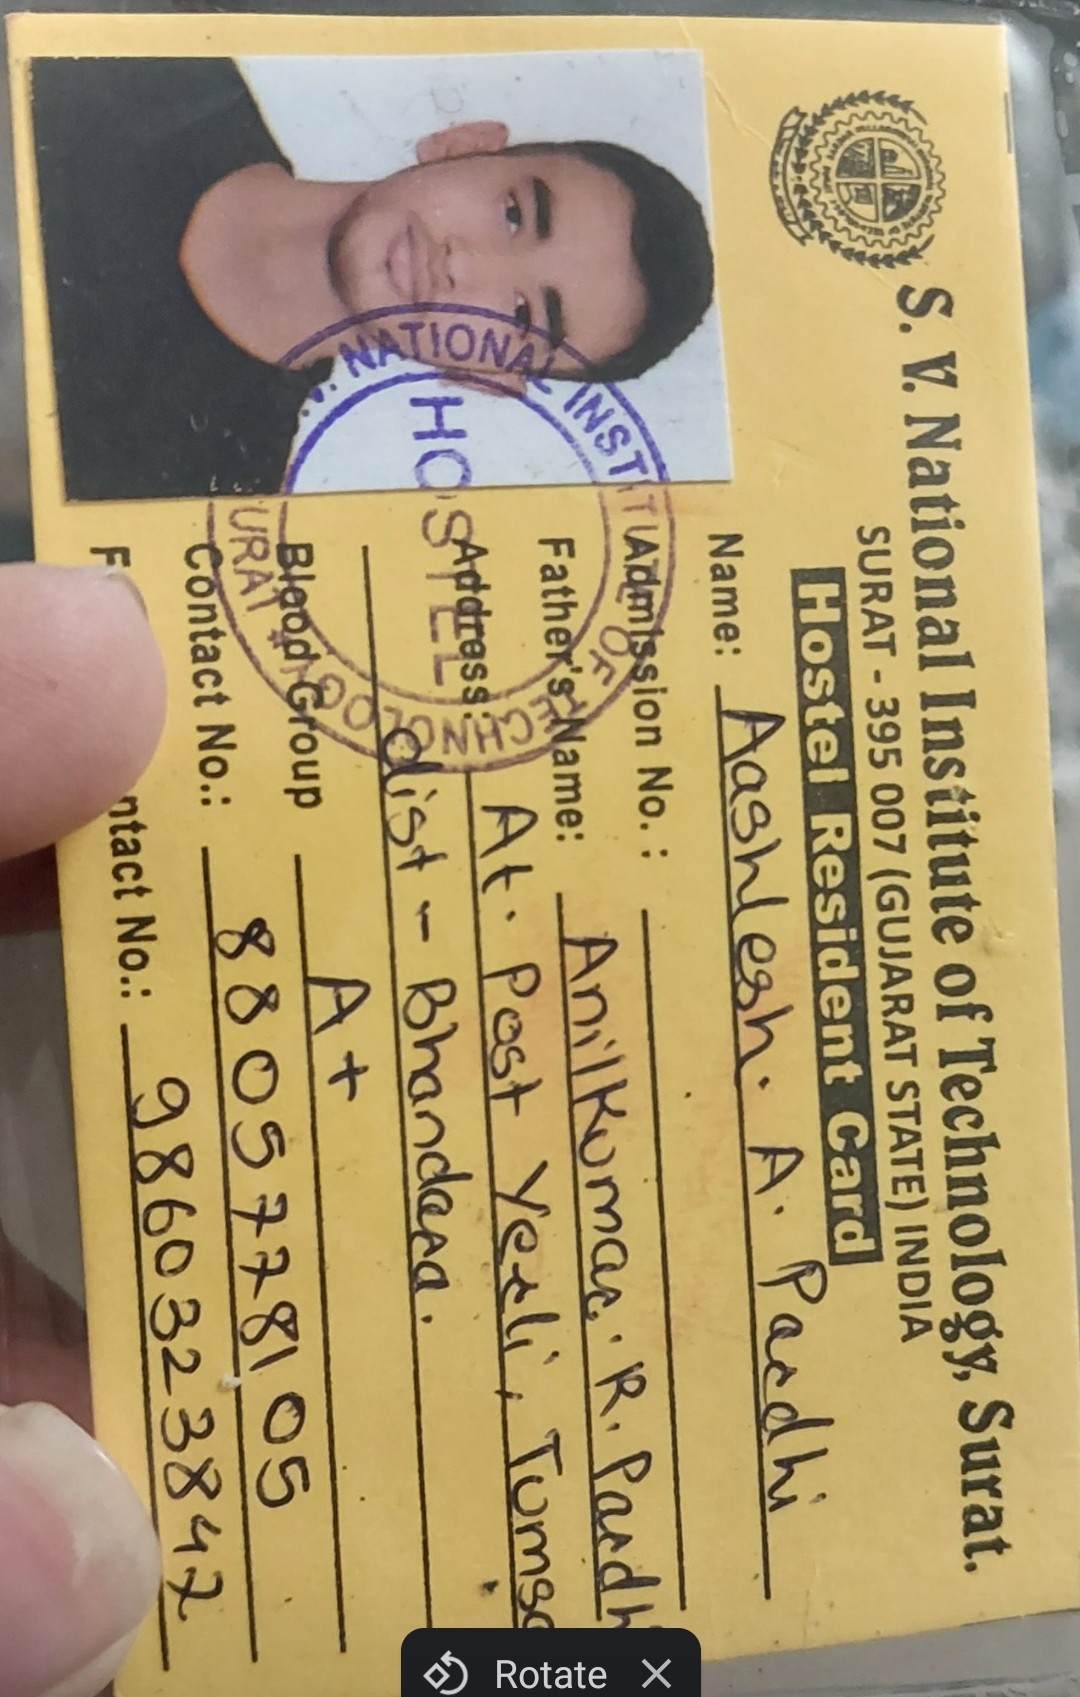 S. V. National Institute of Technology, Surat.
SURAT - 395 007 (GUJARAT STATE) INDIA
Hostel Resident Card
Name: Aashlesh. A. Pardhi
Admission No. :
Father's Name: Anilkumar. R. Pardh
Address: At. Post Yerli, Tumsa
dist - Bhandara.
Blood Group A+
Contact No.: 8805778105
F ntact No.: 9860323847
S.V. NATIONAL INSTITUTE OF TECHNOLOGY SURAT
HOSTEL
Rotate